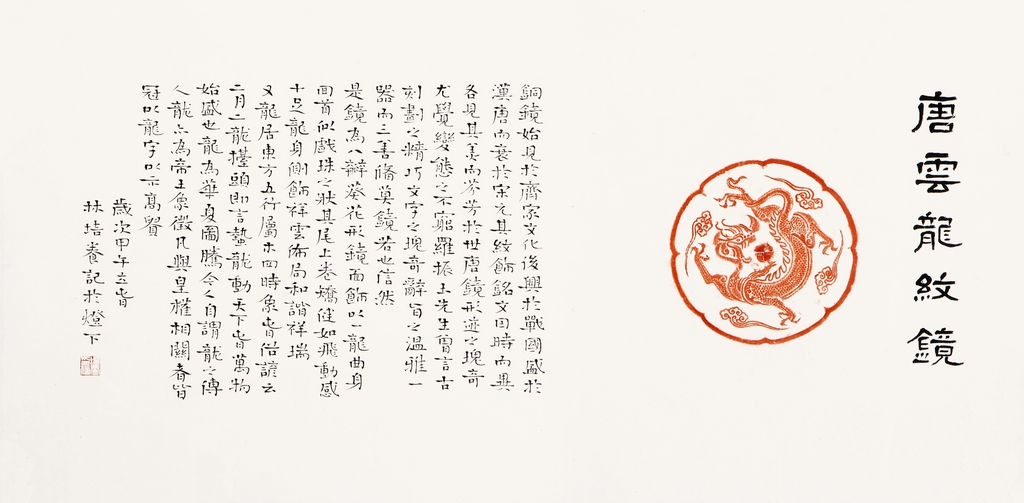 唐雲龍紋鏡
銅鏡始見於齊家文化後興於戰國盛於
漢唐而衰於宋元其紋飾銘文因時而異
各見其美而芬芳於世唐鏡形迹之瑰奇
尤覺變態之不窮羅振玉先生曾言古
刻劃之精巧文字之瑰奇辭旨之溫雅一
器而三善備莫鏡若也信然
是鏡為八瓣葵花形鏡面飾以一龍曲身
回首似戲珠之狀其尾上卷矯健如飛動感
十足龍身側飾祥雲佈局和諧祥瑞
又龍居東方五行屬木四時象春俗諺云
二月二龍擡頭即言蟄龍動天下春萬物
始盛也龍為華夏圖騰今人自謂龍之傳
人龍亦為帝王象徵凡與皇權相關者皆
冠以龍字以示高貴
歲次甲午立春
林培養記於燈下